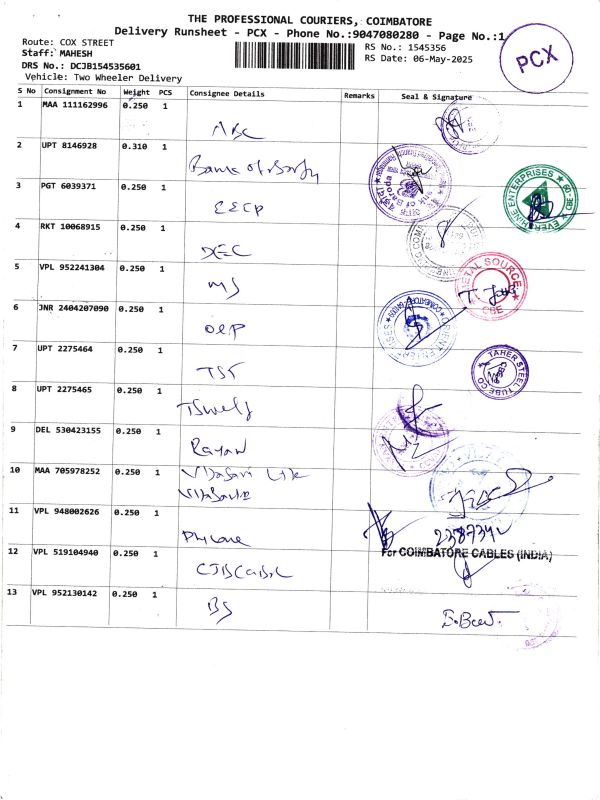 THE PROFESSIONAL COURIERS, COIMBATORE
Delivery Runsheet - PCX - Phone No.:9047080280 - Page No.:1
Route: COX STREET
RS No.: 1545356
PCX
Staff: MAHESH
RS Date: 06-May-2025
DRS No.: DCJB154535601
Vehicle: Two Wheeler Delivery
S No Consignment No Weight PCS Consignee Details Remarks Seal & Signature
1 MAA 111162996 0.250 1
ABC
2 UPT 8146928 0.310 1
Bank of
3 PGT 6039371 0.250 1
EVERSHINE ENTERPRISES
4 RKT 10068915 0.250 1
DEC
5 VPL 952241304 0.250 1
MS
METAL SOURCE
CBE
6 JNR 2404207090 0.250 1
OEP
ORIENT ENTERPRISES
7 UPT 2275464 0.250 1
TST
TAHER STEEL TUBE CO
8 UPT 2275465 0.250 1
9 DEL 530423155 0.250 1
10 MAA 705978252 0.250 1
11 VPL 948002626 0.250 1
For COIMBATORE CABLES (INDIA)
12 VPL 519104940 0.250 1
13 VPL 952130142 0.250 1
BS